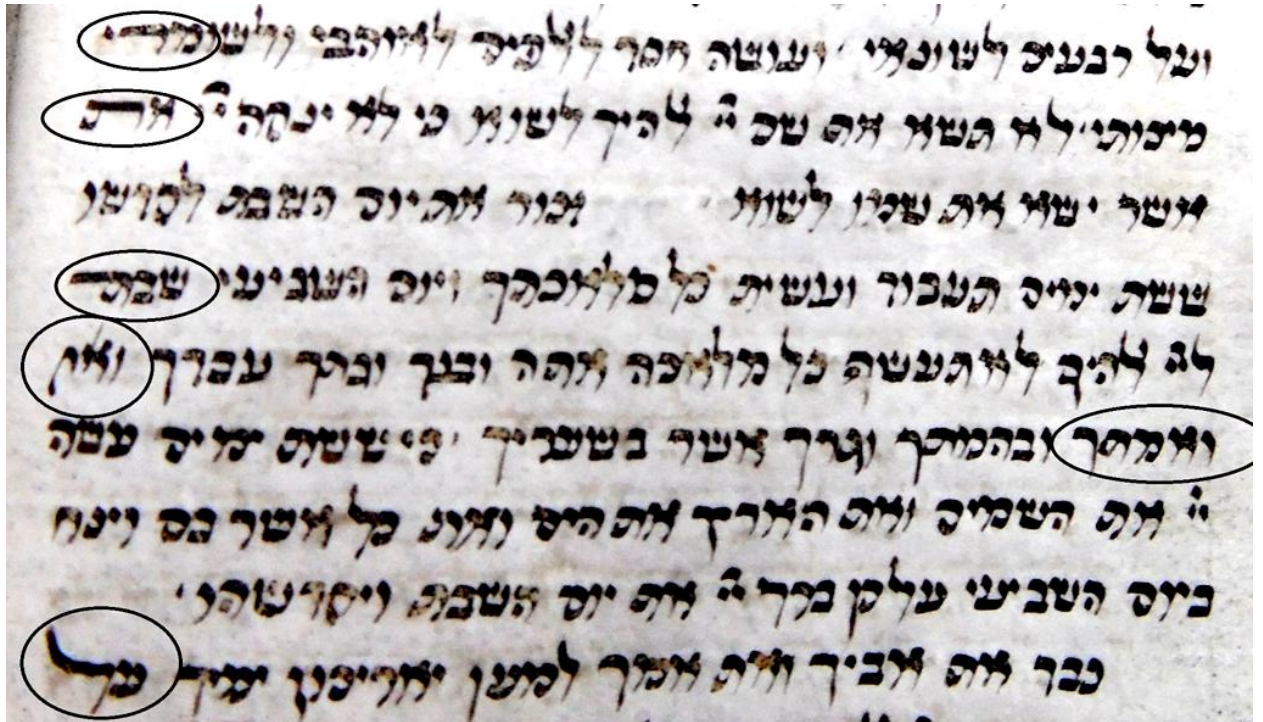 ועל רבעים לשונאי ועושה חסד לאלפים לאוהבי ולשומרי
מצותי לא תשא את שם יי אלהיך לשוא כי לא ינקה יי את
אשר ישא את שמו לשוא זכור את יום השבת לקדשו
ששת ימים תעבוד ועשית כל מלאכתך ויום השביעי שבת
ליי אלהיך לא תעשה כל מלאכה אתה ובנך ובתך עבדך ואמ
ואמתך ובהמתך וגרך אשר בשעריך כי ששת ימים עשה
יי את השמים ואת הארץ את הים ואת כל אשר בם וינח
ביום השביעי על כן ברך יי את יום השבת ויקדשהו
כבד את אביך ואת אמך למען יאריכון ימיך על